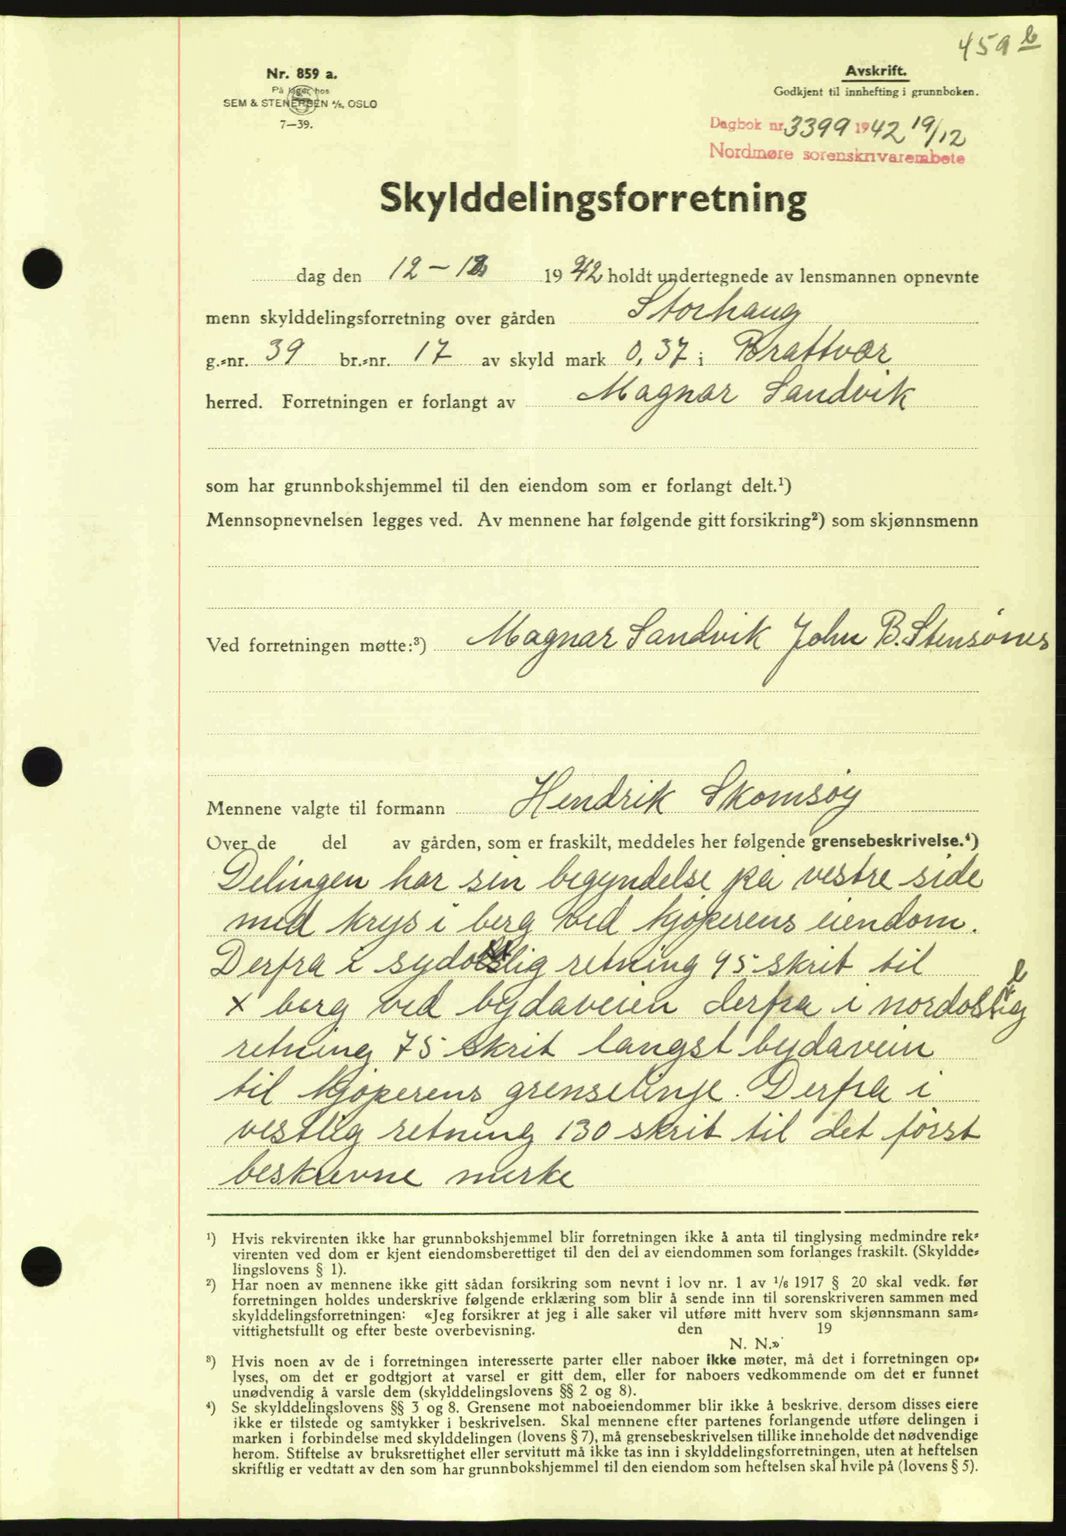 459 b
Nr. 859 a.
På lager hos
SEM & STENERSEN A/S, OSLO
7—39.
Avskrift.
Godkjent til innhefting i grunnboken.
Dagbok nr 3399 1942 19/12
Nordmøre sorenskrivarembete
Skylddelingsforretning
dag den 12 – 12 1942 holdt undertegnede av lensmannen opnevnte
menn skylddelingsforretning over gården Storhaug
g.-nr. 39 br.-nr. 17 av skyld mark 0,37 i Brattvær
herred. Forretningen er forlangt av Magnar Sandvik
som har grunnbokshjemmel til den eiendom som er forlangt delt.¹)
Mennsopnevnelsen legges ved. Av mennene har følgende gitt forsikring²) som skjønnsmenn
Ved forretningen møtte:³) Magnar Sandvik John B. Stensönes
Mennene valgte til formann Hendrik Skomsøy
Over de del av gården, som er fraskilt, meddeles her følgende grensebeskrivelse.⁴)
Delingen har sin begyndelse på vestre side
med krys i berg ved kjøperens eiendom.
Derfra i retning 95 skrit til
x berg ved bydaveien derfra i nordostlig
retning 75 skrit langst bydavein
til kjøperens grenselinje. Derfra i
vestlig retning 130 skrit til det først
beskrevne merke
¹) Hvis rekvirenten ikke har grunnbokshjemmel blir forretningen ikke å anta til tinglysing medmindre rek-
virenten ved dom er kjent eiendomsberettiget til den del av eiendommen som forlanges fraskilt. (Skyldde-
lingslovens § 1).
²) Har noen av mennene ikke gitt sådan forsikring som nevnt i lov nr. 1 av 1/6 1917 § 20 skal vedk. før
forretningen holdes underskrive følgende erklæring som blir å sende inn til sorenskriveren sammen med
skylddelingsforretningen: «Jeg forsikrer at jeg i alle saker vil utføre mitt hverv som skjønnsmann sam-
vittighetsfullt og efter beste overbevisning. den 19
N. N.»
³) Hvis noen av de i forretningen interesserte parter eller naboer ikke møter, må det i forretningen op-
lyses, om det er godtgjort at varsel er gitt dem, eller for naboers vedkommende om det er funnet
unødvendig å varsle dem (skylddelingslovens §§ 2 og 8).
⁴) Se skylddelingslovens §§ 3 og 8. Grensene mot naboeiendommer blir ikke å beskrive, dersom disses eiere
ikke er tilstede og samtykker i beskrivelsen. Skal mennene efter partenes forlangende utføre delingen i
marken i forbindelse med skylddelingen (lovens § 7), må grensebeskrivelsen tillike inneholde det nødvendige
herom. Stiftelse av bruksrettighet eller servitutt må ikke tas inn i skylddelingsforretningen, uten at heftelsen
skriftlig er vedtatt av den som har grunnbokshjemmel til den eiendom som heftelsen skal hvile på (lovens § 5).